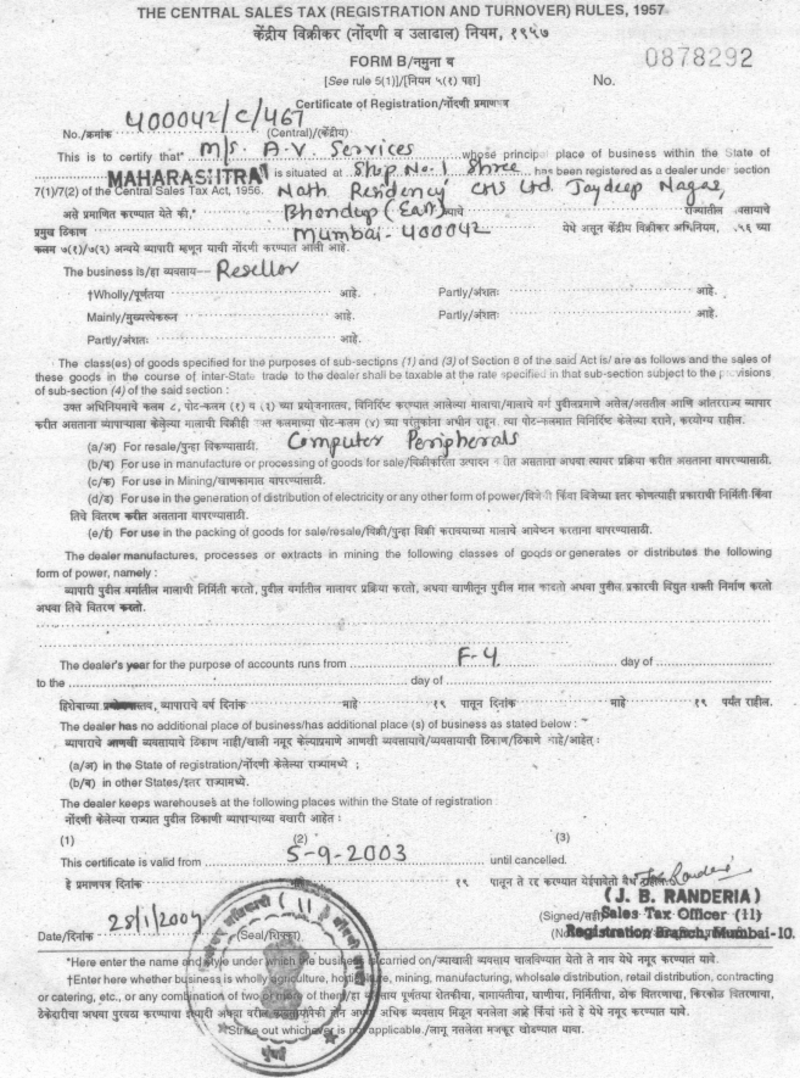 THE CENTRAL SALES TAX (REGISTRATION AND TURNOVER) RULES, 1957
केंद्रीय विक्रीकर (नोंदणी व उलाढाल) नियम, १९५७
FORM B/नमुना ब
0878292
[See rule 5(1)]/[नियम ५(१) पहा]
No.
Certificate of Registration/नोंदणी प्रमाणपत्र
No./क्रमांक 400042/C/467 (Central)/(केंद्रीय)
This is to certify that* M/s. A.V. Services whose principal place of business within the State of
MAHARASHTRA is situated at Shop No. 1 Shree has been registered as a dealer under section
7(1)/7(2) of the Central Sales Tax Act, 1956. Nath Residency CHS Ltd. Jaydeep Nagar,
असे प्रमाणित करण्यात येते की,* Bhandup (East) याचे राज्यातील वसायाचे
प्रमुख ठिकाण Mumbai - 400042 येथे असून केंद्रिय विक्रीकर अधिनियम, ५६ च्या
कलम ७(१)/७(२) अन्वये व्यापारी म्हणून याची नोंदणी करण्यात आली आहे.
The business is/हा व्यवसाय-- Resellor
†Wholly/पूर्णतया आहे. Partly/अंशतः आहे.
Mainly/मुख्यत्वेकरून आहे. Partly/अंशतः आहे.
Partly/अंशतः आहे.
The class(es) of goods specified for the purposes of sub-sections (1) and (3) of Section 8 of the said Act is/ are as follows and the sales of
these goods in the course of inter-State trade to the dealer shall be taxable at the rate specified in that sub-section subject to the provisions
of sub-section (4) of the said section :
उक्त अधिनियमाचे कलम ८, पोट-कलम (१) व (३) च्या प्रयोजनास्तव, विनिर्दिष्ट करण्यात आलेल्या मालाचा/मालाचे वर्ग पुढीलप्रमाणे असेल/असतील आणि आंतरराज्य व्यापार
करीत असताना व्यापाऱ्याला केलेल्या मालाची विक्रीही कलमाच्या पोट-कलम (४) च्या परंतुकांना अधीन राहून. त्या पोट-कलमात विनिर्दिष्ट केलेल्या दराने, करयोग्य राहील.
(a/अ) For resale/पुन्हा विकण्यासाठी. Computer Peripherals
(b/ब) For use in manufacture or processing of goods for sale/विक्रीकरिता उत्पादन रीत असताना अथवा त्यावर प्रक्रिया करीत असताना वापरण्यासाठी.
(c/क) For use in Mining/खाणकामात वापरण्यासाठी.
(d/ड) For use in the generation of distribution of electricity or any other form of power/विजेची किंवा विजेच्या इतर कोणत्याही प्रकाराची निर्मिती किंवा
तिचे वितरण करीत असताना वापरण्यासाठी.
(e/ई) For use in the packing of goods for sale/resale/विक्री/पुन्हा विक्री करावयाच्या मालाचे आवेष्टन करताना वापरण्यासाठी.
The dealer manufactures, processes or extracts in mining the following classes of goods or generates or distributes the following
form of power, namely :
व्यापारी पुढील वर्गातील मालाची निर्मिती करतो, पुढील वर्गातील मालावर प्रक्रिया करतो, अथवा खाणीतून पुढील माल काढतो अथवा पुढील प्रकारची विद्युत शक्ती निर्माण करतो
अथवा तिचे वितरण करतो.
The dealer's year for the purpose of accounts runs from F-4 day of
to the day of
हिशेबाच्या व्यापाराचे वर्ष दिनांक माहे १९ पासून दिनांक माहे १९ पर्यंत राहील.
The dealer has no additional place of business/has additional place (s) of business as stated below :
व्यापाराचे आणखी व्यवसायाचे ठिकाण नाही/खाली नमूद केल्याप्रमाणे आणखी व्यवसायाचे/व्यवसायाची ठिकाण/ठिकाणे आहे/आहेत् :
(a/अ) in the State of registration/नोंदणी केलेल्या राज्यामध्ये ;
(b/ब) in other States/इतर राज्यामध्ये.
The dealer keeps warehouses at the following places within the State of registration
नोंदणी केलेल्या राज्यात पुढील ठिकाणी व्यापाऱ्याच्या वखारी आहेत :
(1) (2) (3)
This certificate is valid from 5-9-2003 until cancelled.
हे प्रमाणपत्र दिनांक १९ पासून ते रद्द करण्यात येईपावेतो वैध राहील.
(J. B. RANDERIA)
(Signed/सही) Sales Tax Officer (11)
Date/दिनांक 28/1/2004 (Seal/शिक्का)
Registration Branch, Mumbai-10.
*Here enter the name and style under which the business is carried on/ज्याखाली व्यवसाय चालविण्यात येतो ते नाव येथे नमूद करण्यात यावे.
†Enter here whether business is wholly agriculture, horticulture, mining, manufacturing, wholsale distribution, retail distribution, contracting
or catering, etc., or any combination of two or more of them/हा व्यवसाय पूर्णतया शेतकीचा, बागायतीचा, खाणीचा, निर्मितीचा, ठोक वितरणाचा, किरकोळ वितरणाचा,
ठेकेदारीचा अथवा पुरवठा करण्याचा इत्यादी अथवा वरील दोन अथवा अधिक व्यवसाय मिळून बनलेला आहे किंवा कसे हे येथे नमूद करण्यात यावे.
*Strike out whichever is not applicable./लागू नसलेला मजकूर खोडण्यात यावा.
मुंबई